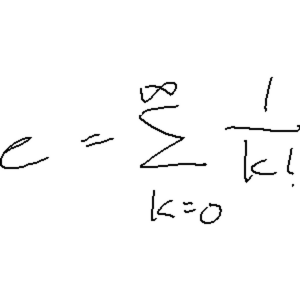 e = ∑_{k=0}^{∞} \frac{1}{k!}